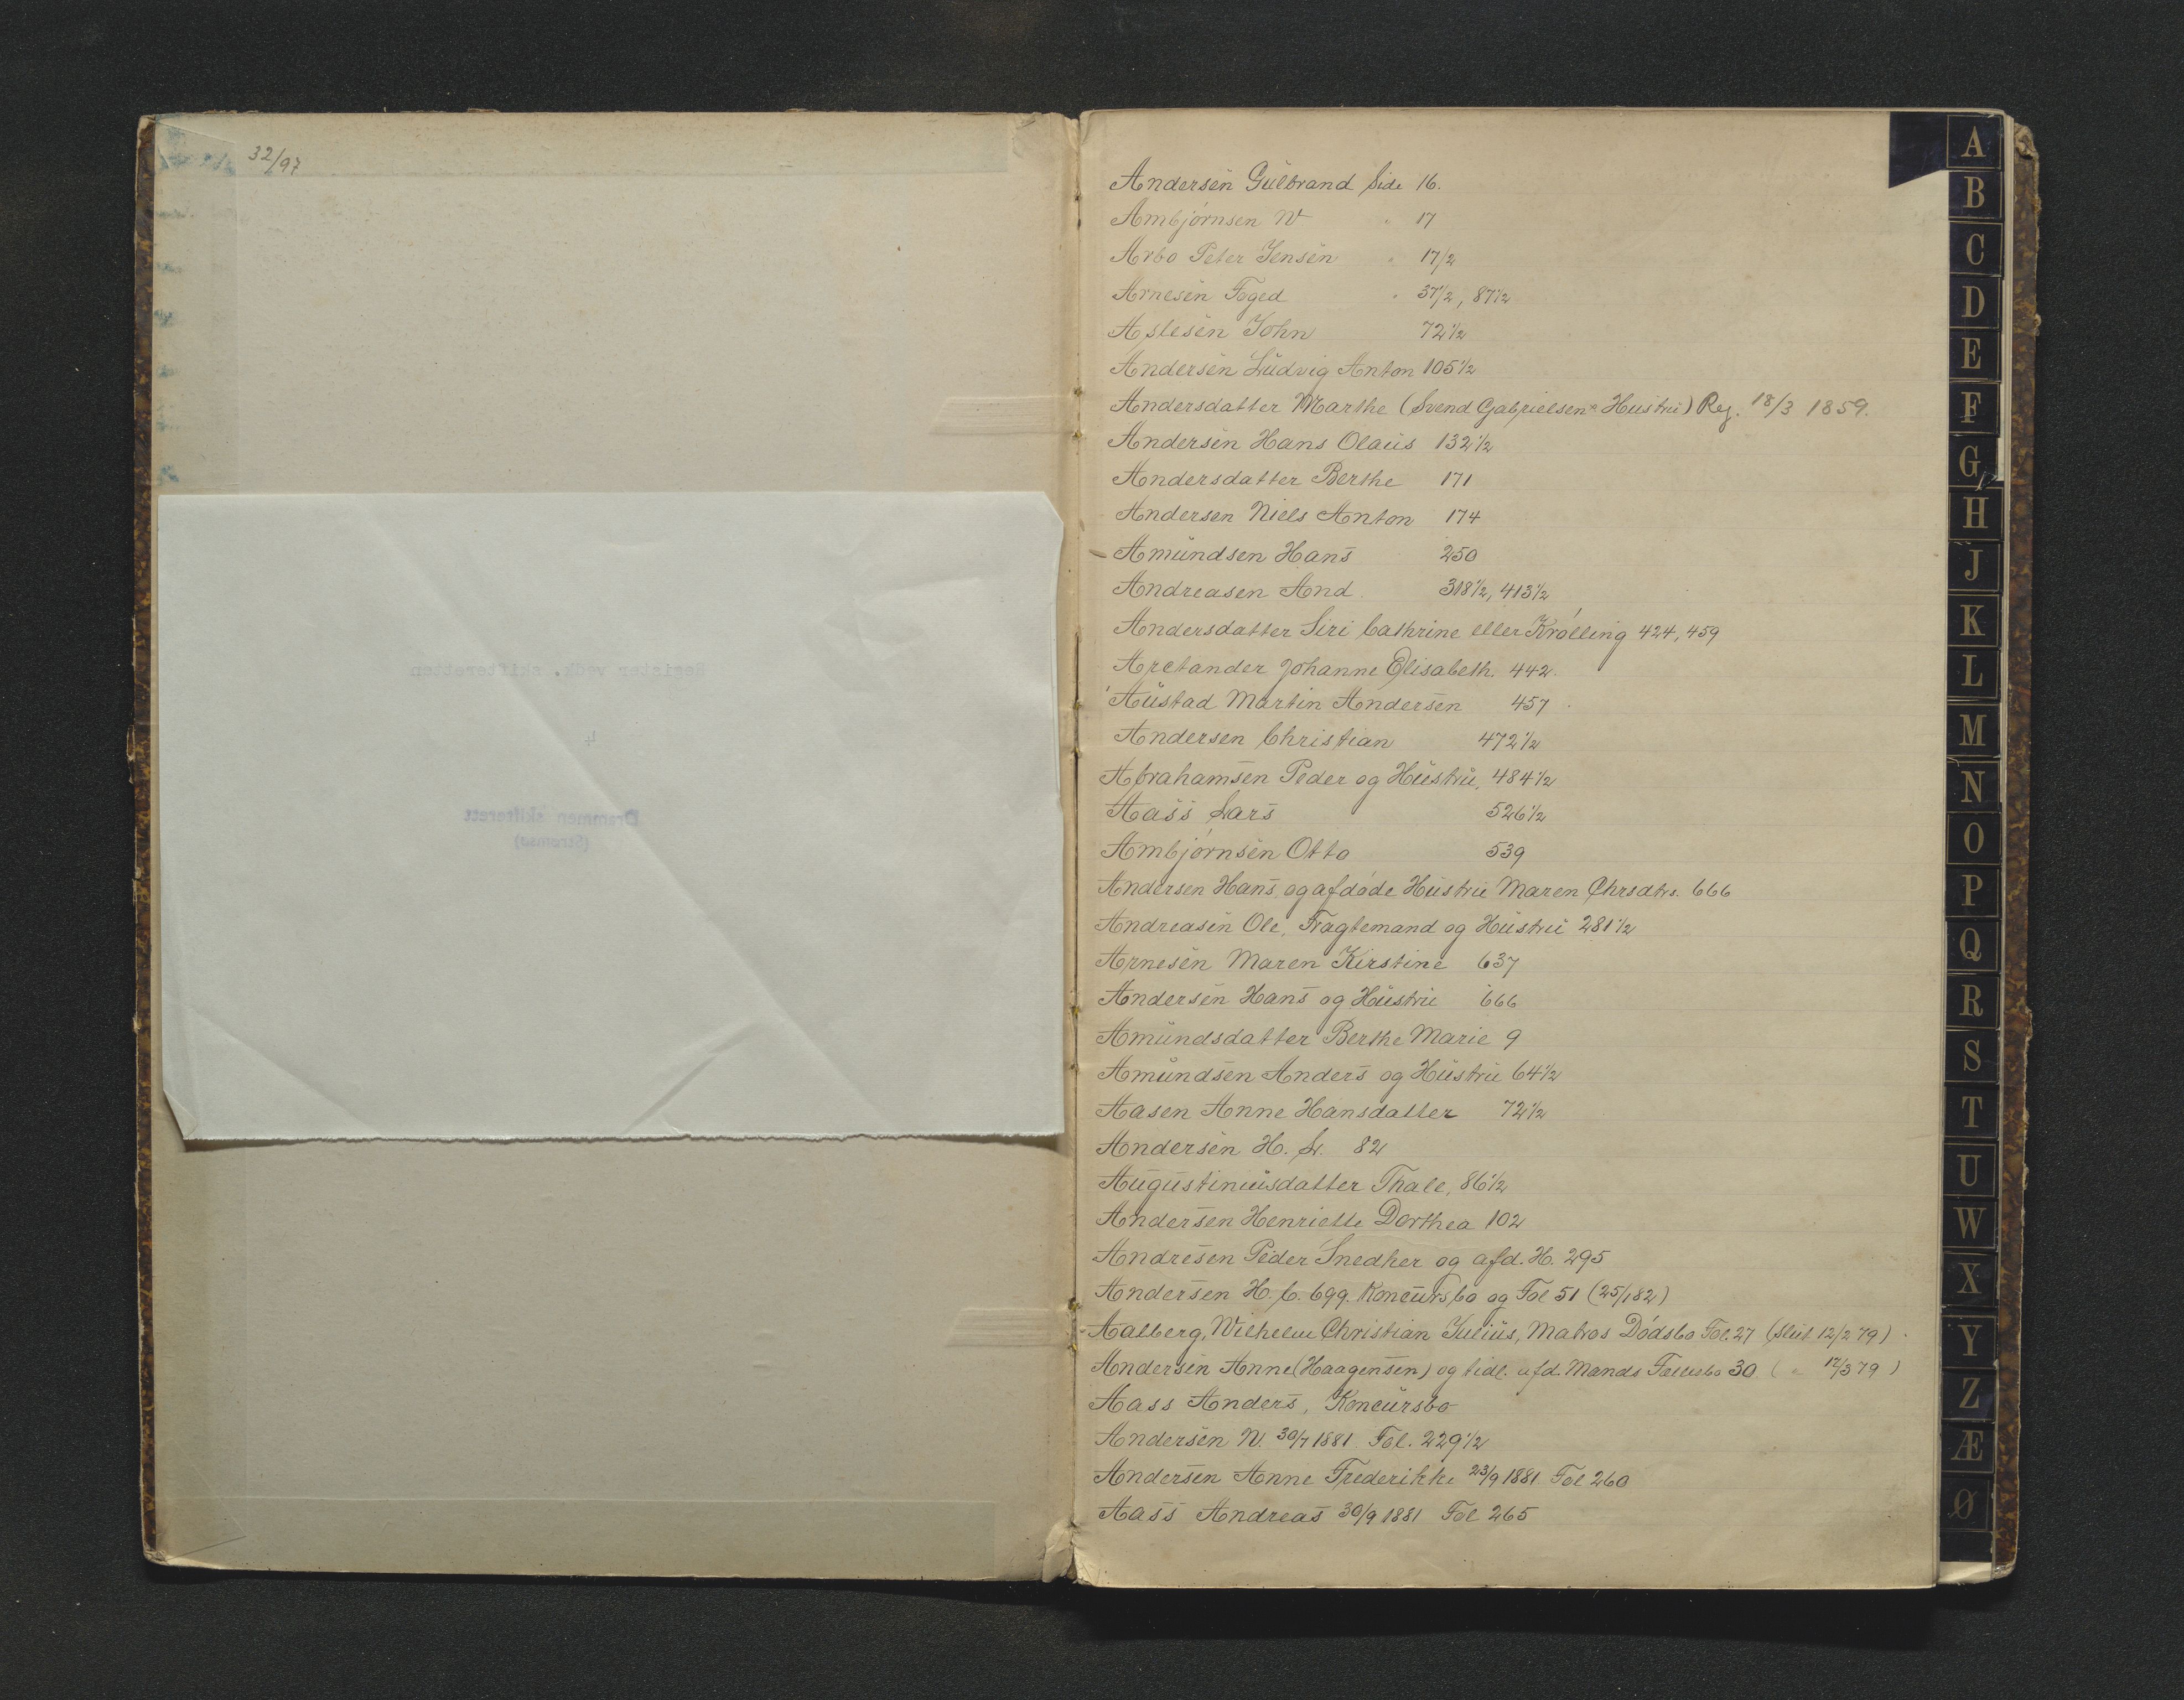 32/97
Register vedk. skifteretten
4
Drammen skifterett
(Strømsø)
Andersen Gulbrand Side 16.
Ambjørnsen N " 17
Arbo Peter Jensen " 17/2
Arnesen Foged " 37 1/2, 87 1/2
Aslesen John 72 1/2
Andersen Ludvig Anton 105 1/2
Andersdatter Marthe (Svend Gabrielsens Hustru) Reg. 18/3 1859.
Andersen Hans Olaus 132 1/2
Andersdatter Berthe 171
Andersen Niels Anton 174
Amundsen Hans 250
Andreasen And. 318 1/2, 413 1/2
Andersdatter Siri Cathrine eller Krølling 424, 459
Arctander Johanne Elisabeth. 442.
Austad Martin Andersen 457
Andersen Christian 472 1/2
Abrahamsen Peder og Hustru, 484 1/2
Aass Lars 526 1/2
Ambjørnsen Otto 539
Andersen Hans og afdøde Hustru Maren Chrsdtr. 666
Andreasen Ole, Fragtemand og Hustru 281 1/2
Arnesen Maren Kirstine 637
Andersen Hans og Hustru 666
Amundsdatter Berthe Marie 9
Amundsen Anders og Hustru 64 1/2
Aasen Anne Hansdatter 72 1/2
Andersen H. L. 82
Augustinusdatter Thale, 86 1/2
Andersen Henriette Dorthea 102
Andresen Peder Snedker og afd. H. 295
Andersen H. C. 699. Koncursbo og Fol 51 (25/1 82)
Aalberg, Wilhelm Christian Julius, Matros Dødsbo Fol. 27 (slut 12/2 79)
Andersen Anne (Haagensen) og tidl. afd. Mands Fællesbo 30 ( " 12/3 79 )
Aass Anders, Koncursbo
Andersen N. 30/7 1881 Fol. 229 1/2
Andersen Anne Frederikke 23/9 1881 Fol 260
Aass Andreas 30/9 1881 Fol 265
A
B
C
D
E
F
G
H
J
K
L
M
N
O
P
Q
R
S
T
U
W
X
Y
Z
Æ
Ø